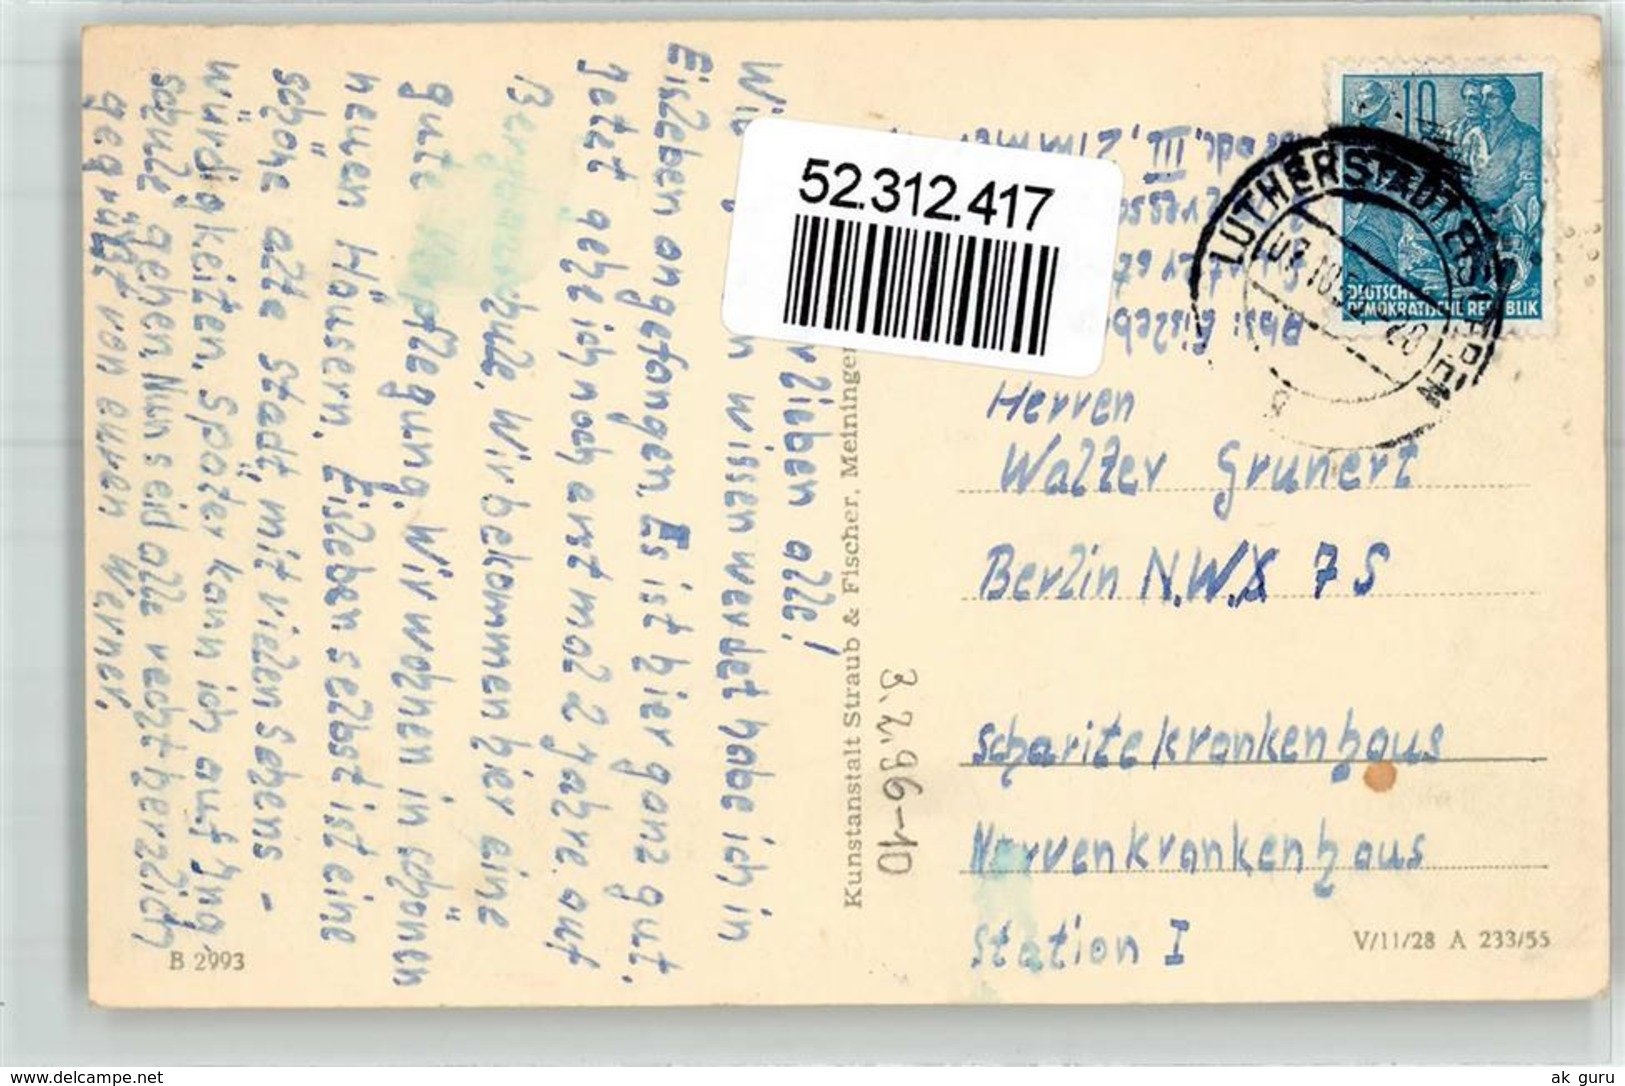 52.312.417
10
DEUTSCHE
DEMOKRATISCHE REPUBLIK
LUTHERSTADT EISLEBEN
Abs: Eisleben
III, Zimmer
lieben alle!
Wie wissen werdet habe ich in
Eisleben angefangen. Es ist hier ganz gut.
Jetzt gehe ich noch erst mal 2 Jahre auf
Bergbauschule. Wir bekommen hier eine
gute Verpflegung. Wir wohnen in schönen
neuen Häusern. Eisleben selbst ist eine
schöne alte Stadt, mit vielen Sehens-
würdigkeiten. Später kann ich auf Ing.
schule gehen. Nun seid alle recht herzlich
gegrüßt von euren Werner.
Kunstanstalt Straub & Fischer, Meiningen
3.2.96-10
Herren
Walter Grunert
Berlin N.W.X 7 S
Scharitekrankenhaus
Nervenkrankenhaus
Station I
B 2993
V/11/28 A 233/55
www.delcampe.net
ak_guru